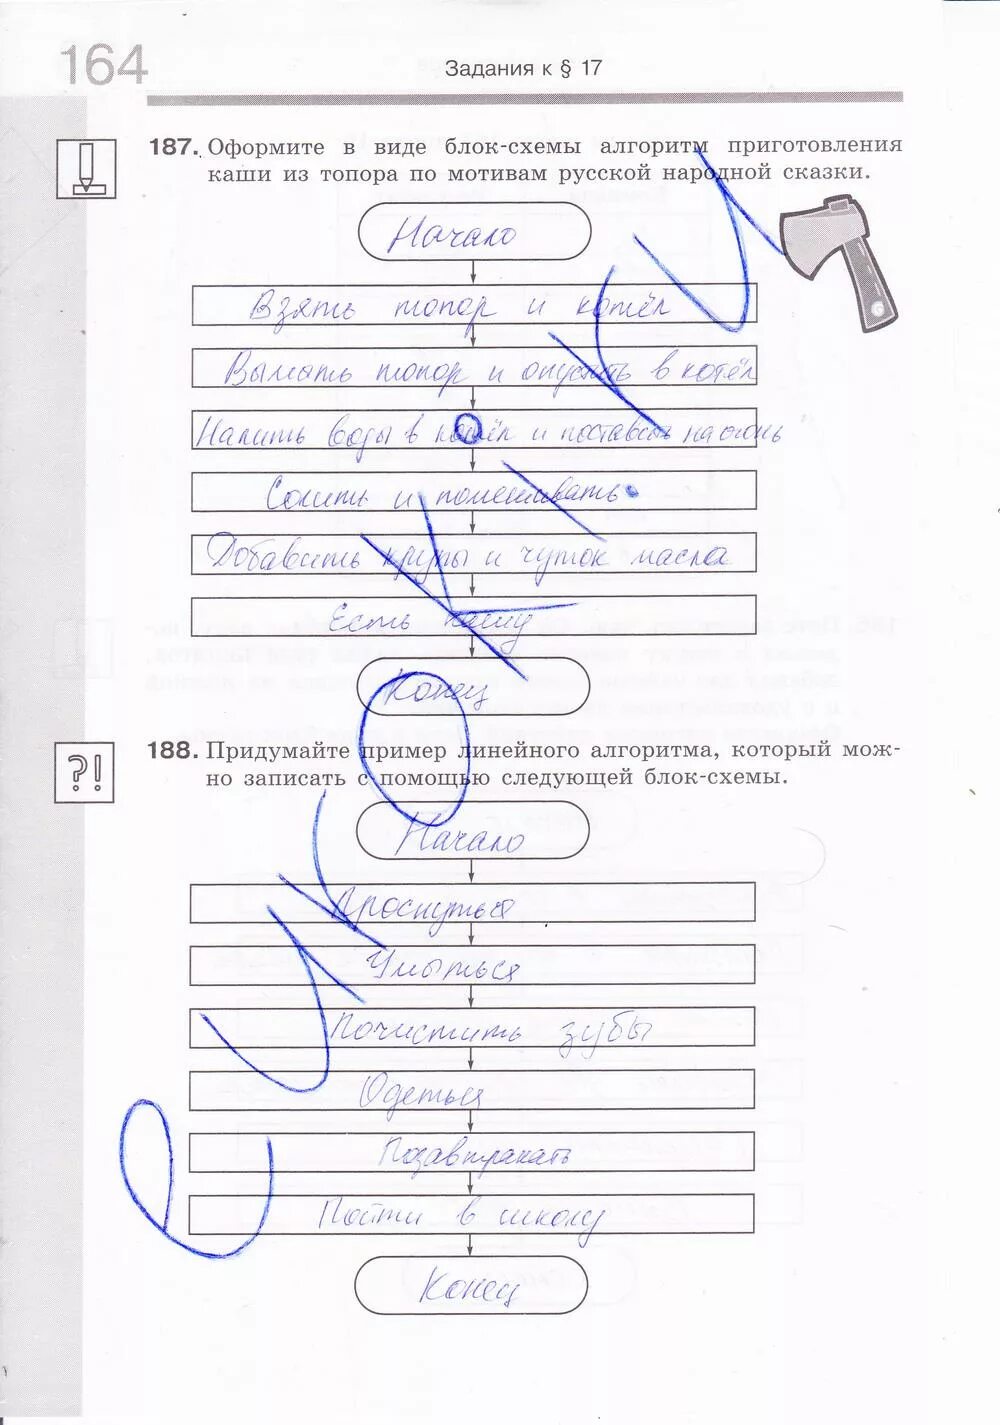 164
Задания к § 17
187. Оформите в виде блок-схемы алгоритм приготовления
каши из топора по мотивам русской народной сказки.
Начало
Взять топор и котёл
Вымыть топор и опустить в котёл
Налить воды в котёл и поставить на огонь
Солить и помешивать
Добавить крупы и чуток масла
Есть кашу
Конец
188. Придумайте пример линейного алгоритма, который мож-
но записать с помощью следующей блок-схемы.
?!
Начало
Проснуться
Умыться
Почистить зубы
Одеться
Позавтракать
Пойти в школу
Конец